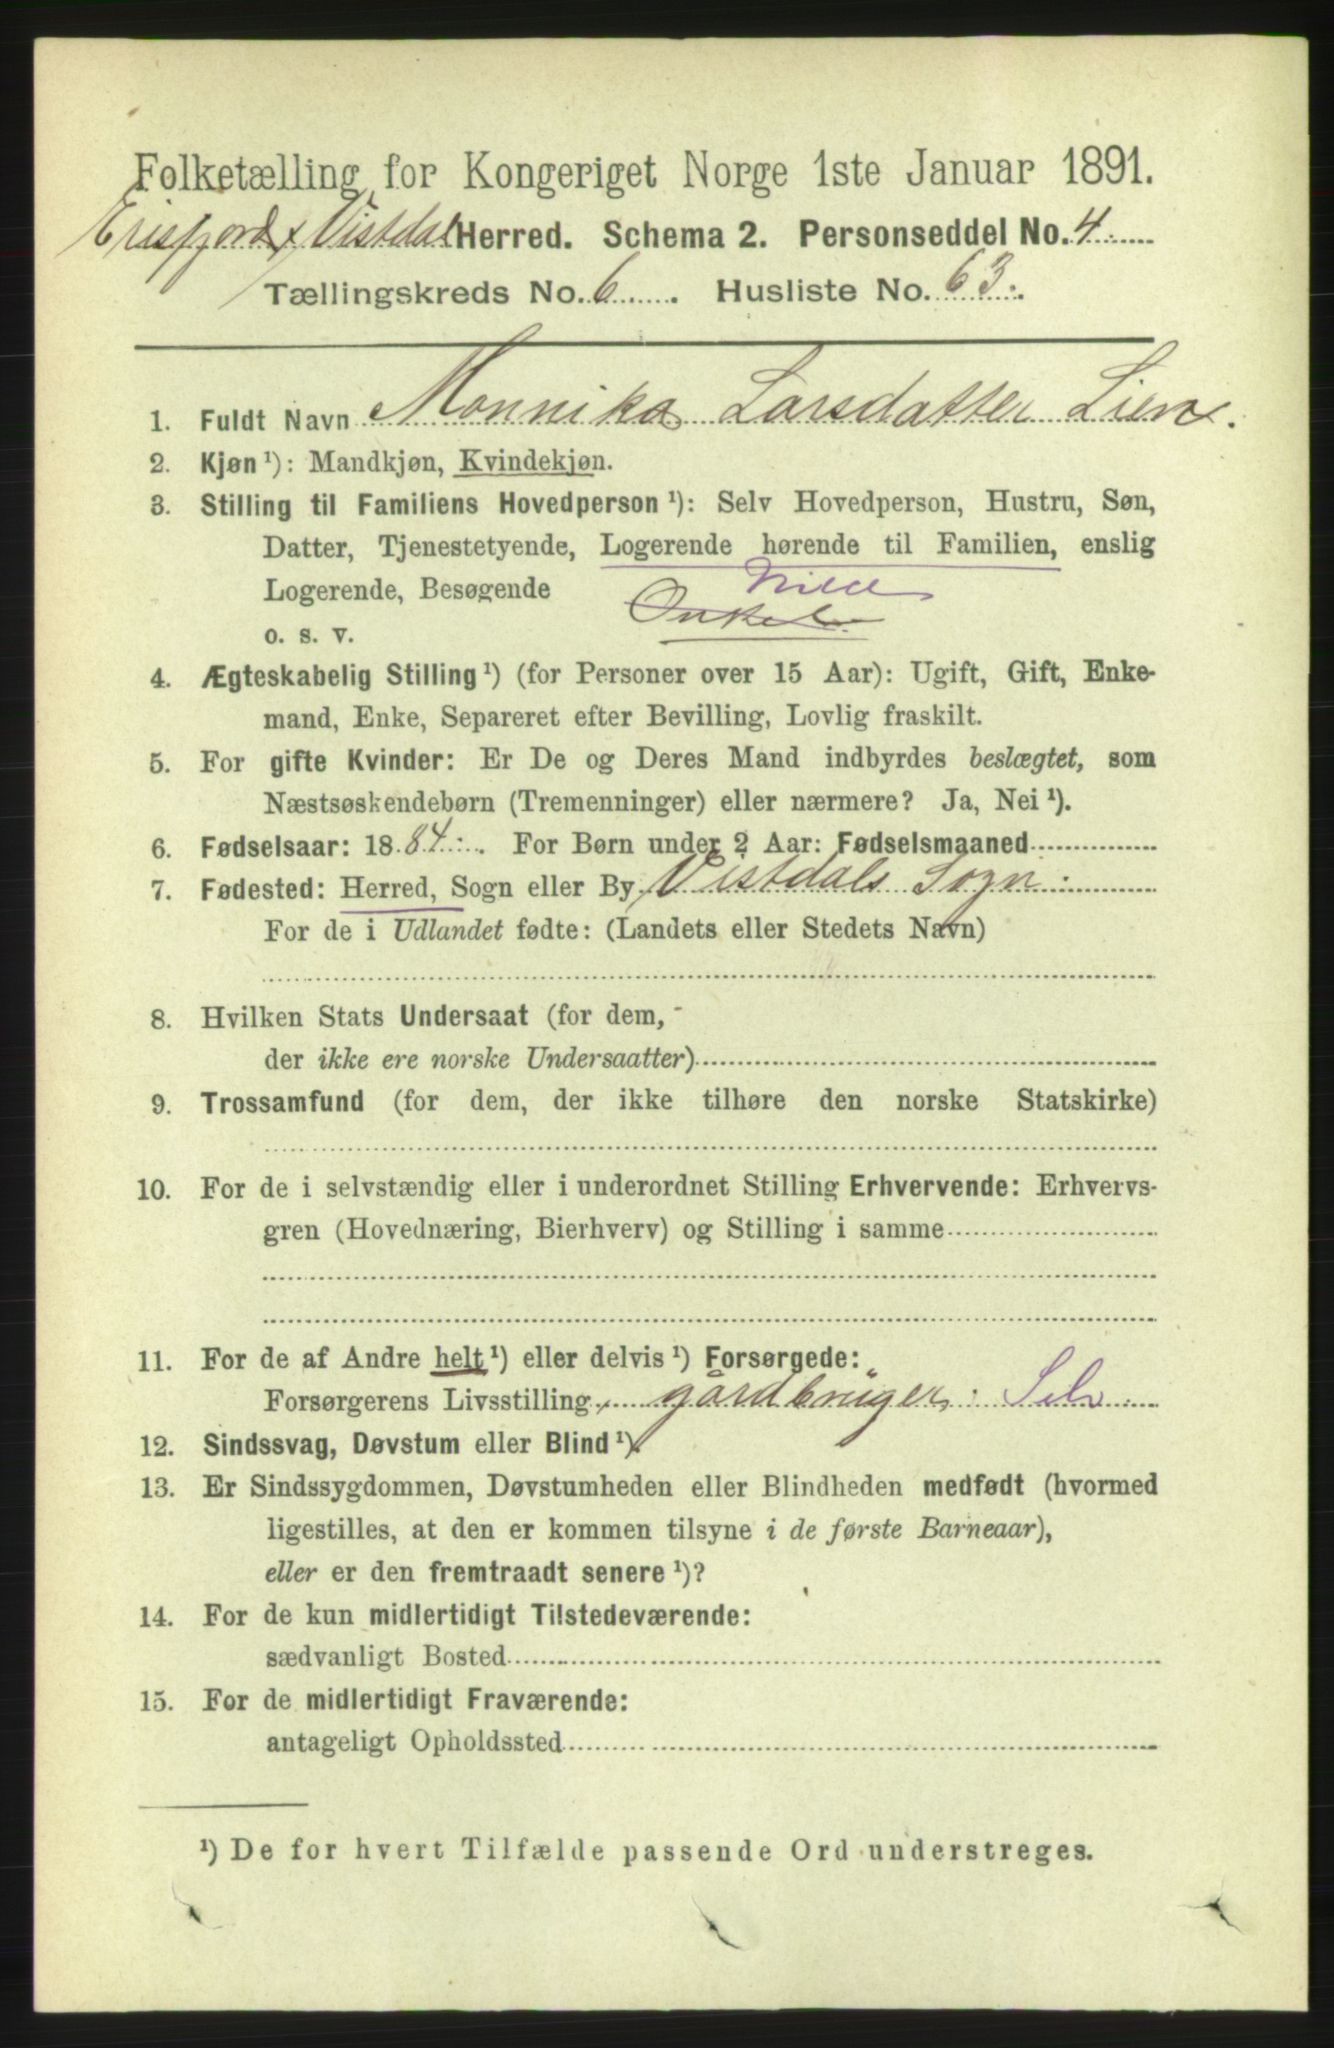 Folketælling for Kongeriget Norge 1ste Januar 1891.
Erisfjord & Vistdal Herred. Schema 2. Personseddel No. 4
Tællingskreds No. 6. Husliste No. 63.
1. Fuldt Navn Monnika Larsdatter Lien.
2. Kjøn ¹): Mandkjøn, Kvindekjøn.
3. Stilling til Familiens Hovedperson ¹): Selv Hovedperson, Hustru, Søn,
Datter, Tjenestetyende, Logerende hørende til Familien, enslig
Logerende, Besøgende
Onkel
o. s. v.
4. Ægteskabelig Stilling ¹) (for Personer over 15 Aar): Ugift, Gift, Enke-
mand, Enke, Separeret efter Bevilling, Lovlig fraskilt.
5. For gifte Kvinder: Er De og Deres Mand indbyrdes beslægtet, som
Næstsøskendebørn (Tremenninger) eller nærmere? Ja, Nei ¹).
6. Fødselsaar: 1884. For Børn under 2 Aar: Fødselsmaaned
7. Fødested: Herred, Sogn eller By Vistdals Sogn.
For de i Udlandet fødte: (Landets eller Stedets Navn)
8. Hvilken Stats Undersaat (for dem,
der ikke ere norske Undersaatter)
9. Trossamfund (for dem, der ikke tilhøre den norske Statskirke)
10. For de i selvstændig eller i underordnet Stilling Erhvervende: Erhvervs-
gren (Hovednæring, Bierhverv) og Stilling i samme
11. For de af Andre helt ¹) eller delvis ¹) Forsørgede:
Forsørgerens Livsstilling, gårdbruger. Selv.
12. Sindssvag, Døvstum eller Blind ¹).
13. Er Sindssygdommen, Døvstumheden eller Blindheden medfødt (hvormed
ligestilles, at den er kommen tilsyne i de første Barneaar),
eller er den fremtraadt senere ¹)?
14. For de kun midlertidigt Tilstedeværende:
sædvanligt Bosted
15. For de midlertidigt Fraværende:
antageligt Opholdssted
¹) De for hvert Tilfælde passende Ord understreges.